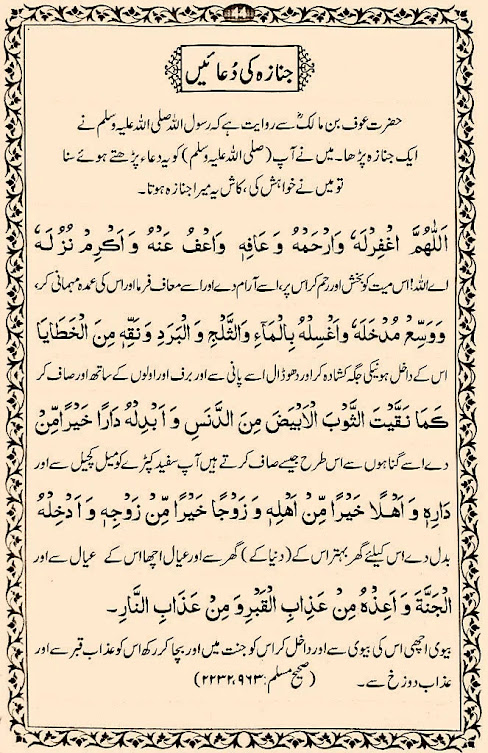 جنازہ کی دُعائیں
حضرت عوف بن مالکؓ سے روایت ہے کہ رسول اللہ صلی اللہ علیہ وسلم نے
ایک جنازہ پڑھا۔ میں نے آپ (صلی اللہ علیہ وسلم) کو یہ دعاء پڑھتے ہوئے سنا
تو میں نے خواہش کی، کاش یہ میرا جنازہ ہوتا۔
اَللّٰهُمَّ اغْفِرْلَهٗ وَارْحَمْهُ وَ عَافِهٖ وَاعْفُ عَنْهُ وَ اَكْرِمْ نُزُلَهٗ
اے اللہ! اس میت کو بخش اور رحم کر اس پر، اسے آرام دے اور اسے معاف فرما اور اس کی عمدہ مہمانی کر،
وَوَسِّعْ مُدْخَلَهٗ وَاغْسِلْهُ بِالْمَآءِ وَالثَّلْجِ وَ الْبَرَدِ وَنَقِّهٖ مِنَ الْخَطَايَا
اس کے داخل ہونیکی جگہ کشادہ کر اور دھو ڈال اسے پانی سے اور برف اور اولوں کے ساتھ اور صاف کر
كَمَا نَقَّيْتَ الثَّوْبَ الْاَبْيَضَ مِنَ الدَّنَسِ وَ اَبْدِلْهُ دَارًا خَيْرًا مِّنْ
دے اسے گناہوں سے اس طرح جیسے صاف کرتے ہیں آپ سفید کپڑے کو میل کچیل سے اور
دَارِهٖ وَ اَهْلًا خَيْرًا مِّنْ اَهْلِهٖ وَ زَوْجًا خَيْرًا مِّنْ زَوْجِهٖ وَ اَدْخِلْهُ
بدل دے اس کیلئے گھر بہتر اس کے (دنیا کے) گھر سے اور عیال اچھا اس کے عیال سے اور
الْجَنَّةَ وَ اَعِذْهُ مِنْ عَذَابِ الْقَبْرِ وَ مِنْ عَذَابِ النَّارِ۔
بیوی اچھی اس کی بیوی سے اور داخل کر اس کو جنت میں اور بچا کر رکھ اس کو عذاب قبر سے اور
عذاب دوزخ سے۔ (صحیح مسلم: ۲۲۳۲،۹۶۳)